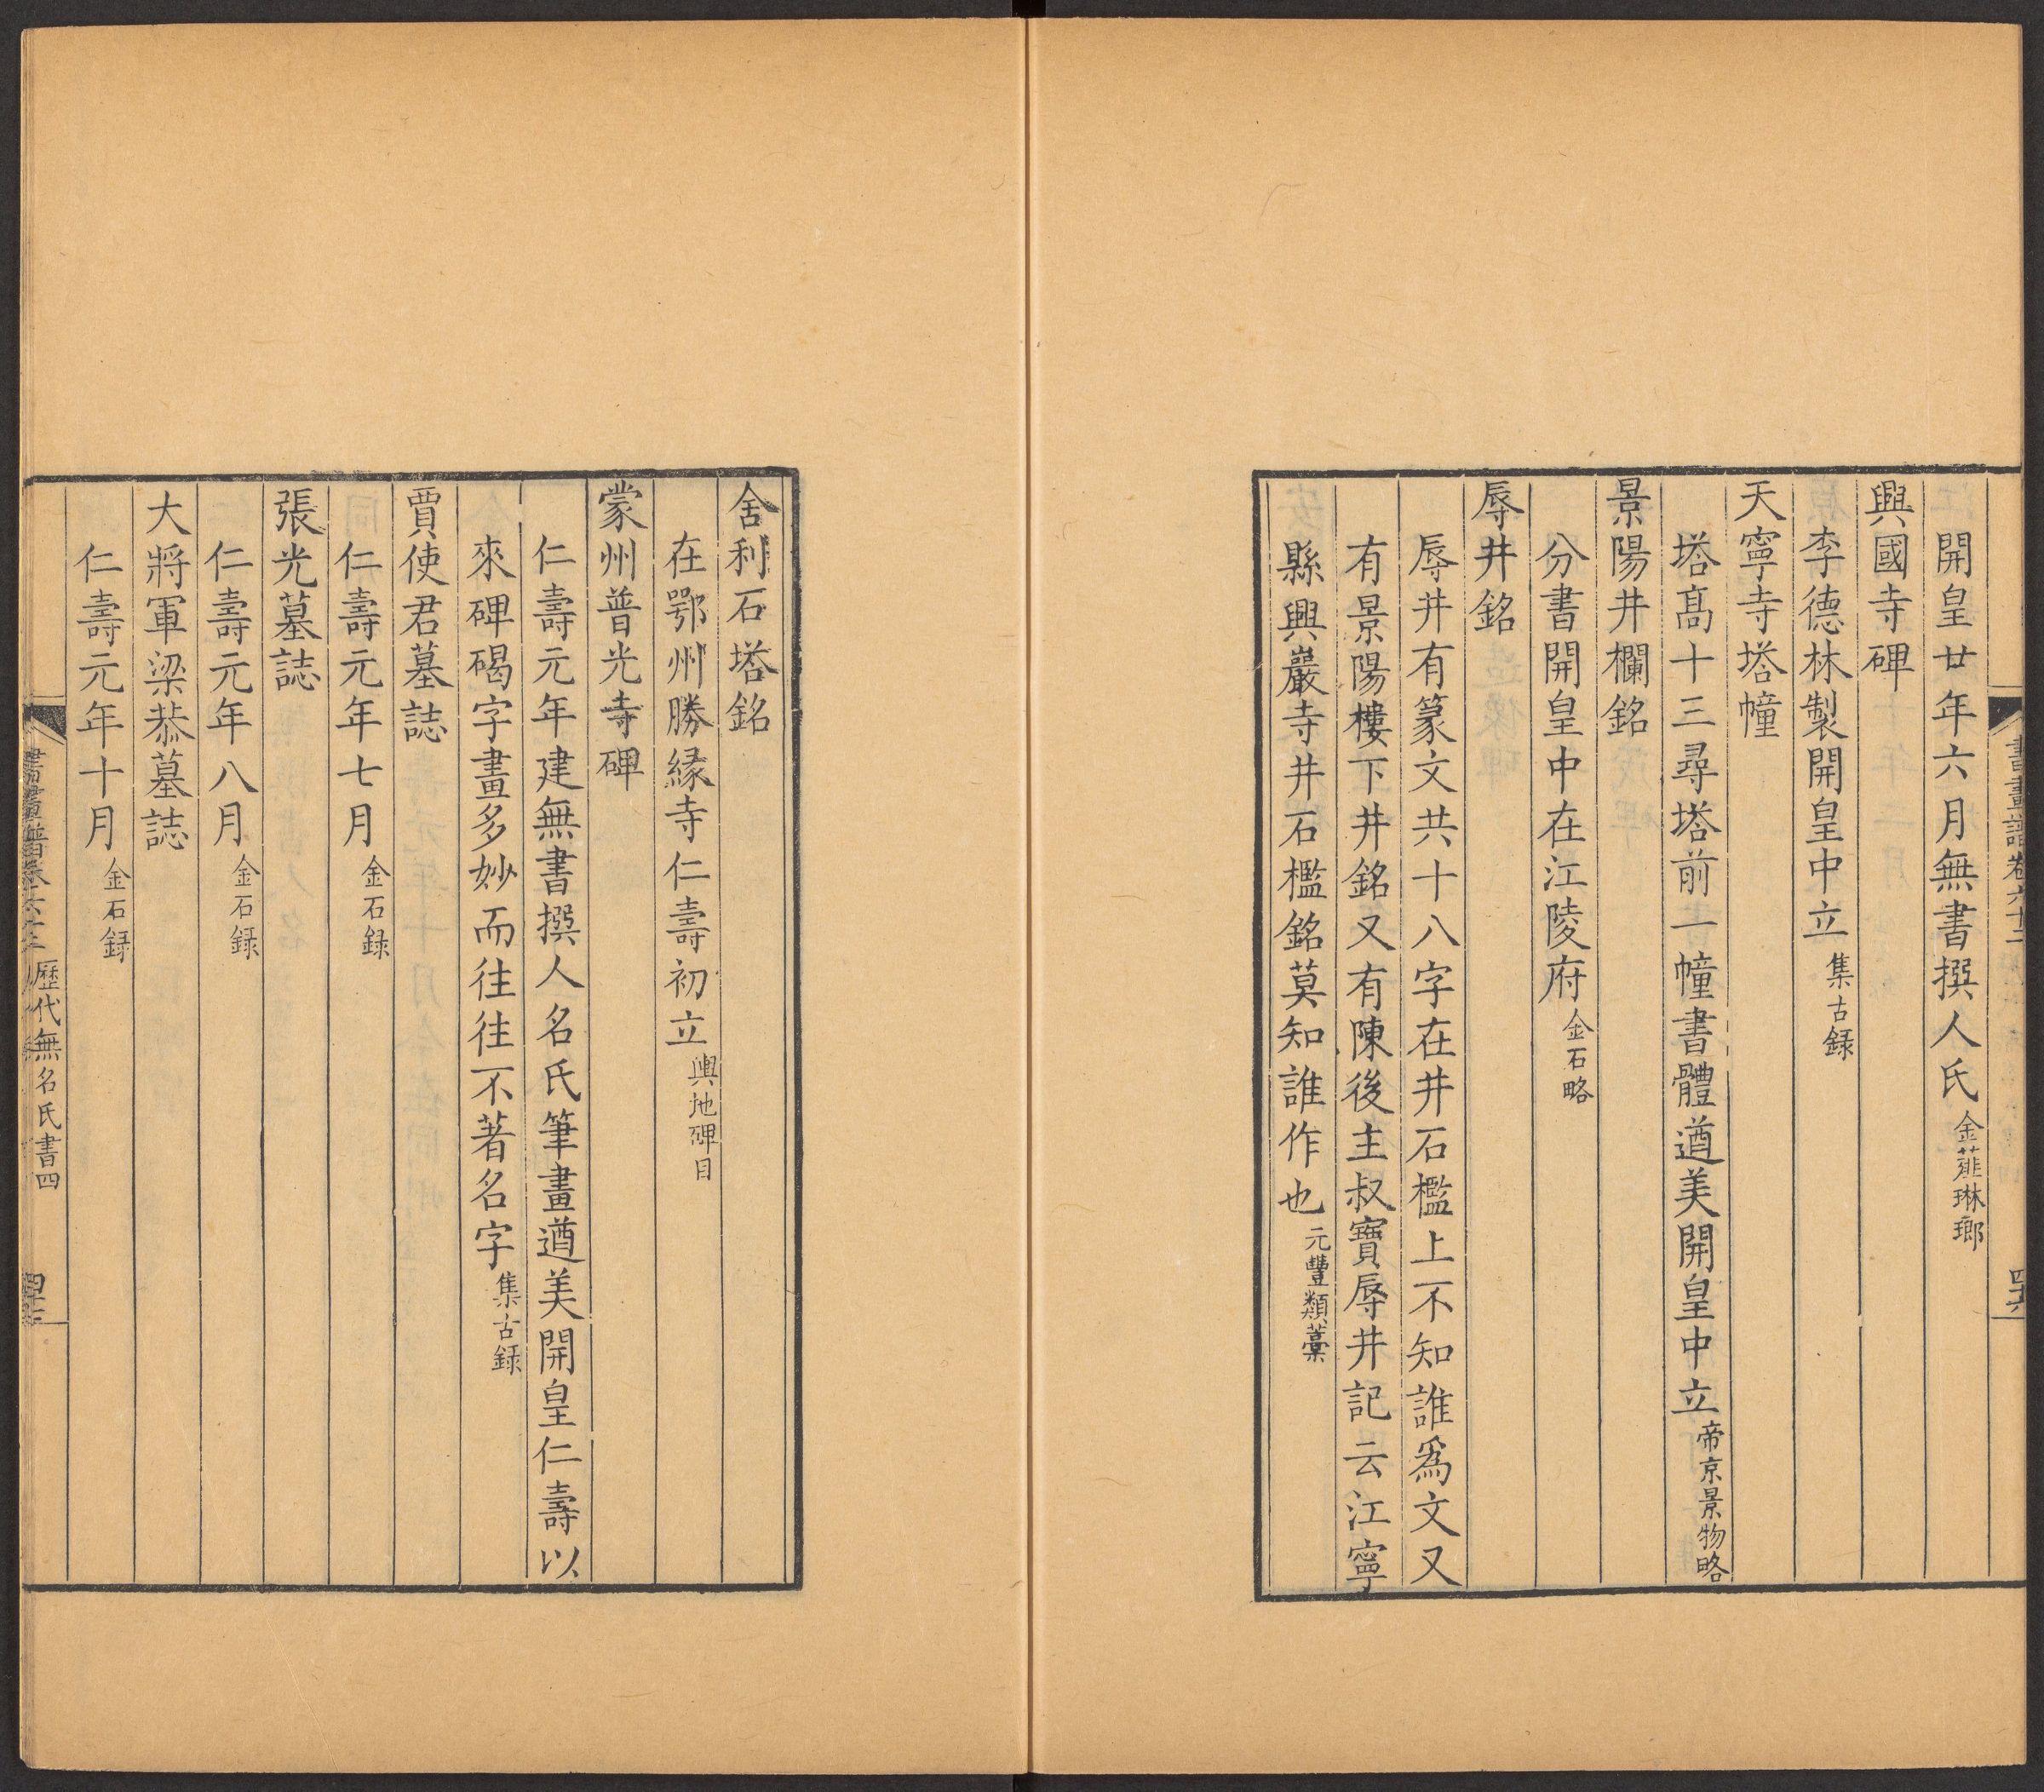 開皇廿年六月無書撰人氏金薤琳瑯
興國寺碑
李德林製開皇中立集古録
天寧寺塔幢
塔高十三尋塔前一幢書體遒美開皇中立帝京景物略
景陽井欄銘
分書開皇中在江陵府金石略
辱井銘
辱井有篆文共十八字在井石檻上不知誰爲文又
有景陽樓下井銘又有陳後主叔寶辱井記云江寧
縣興巖寺井石檻銘莫知誰作也元豐類藁
舍利石塔銘
在鄂州勝緣寺仁壽初立輿地碑目
蒙州普光寺碑
仁壽元年建無書撰人名氏筆畫遒美開皇仁壽以
來碑碣字畫多妙而往往不著名字集古録
賈使君墓誌
仁壽元年七月金石録
張光墓誌
仁壽元年八月金石録
大將軍梁恭墓誌
仁壽元年十月金石録
書畫譜卷六十二 歷代無名氏書四